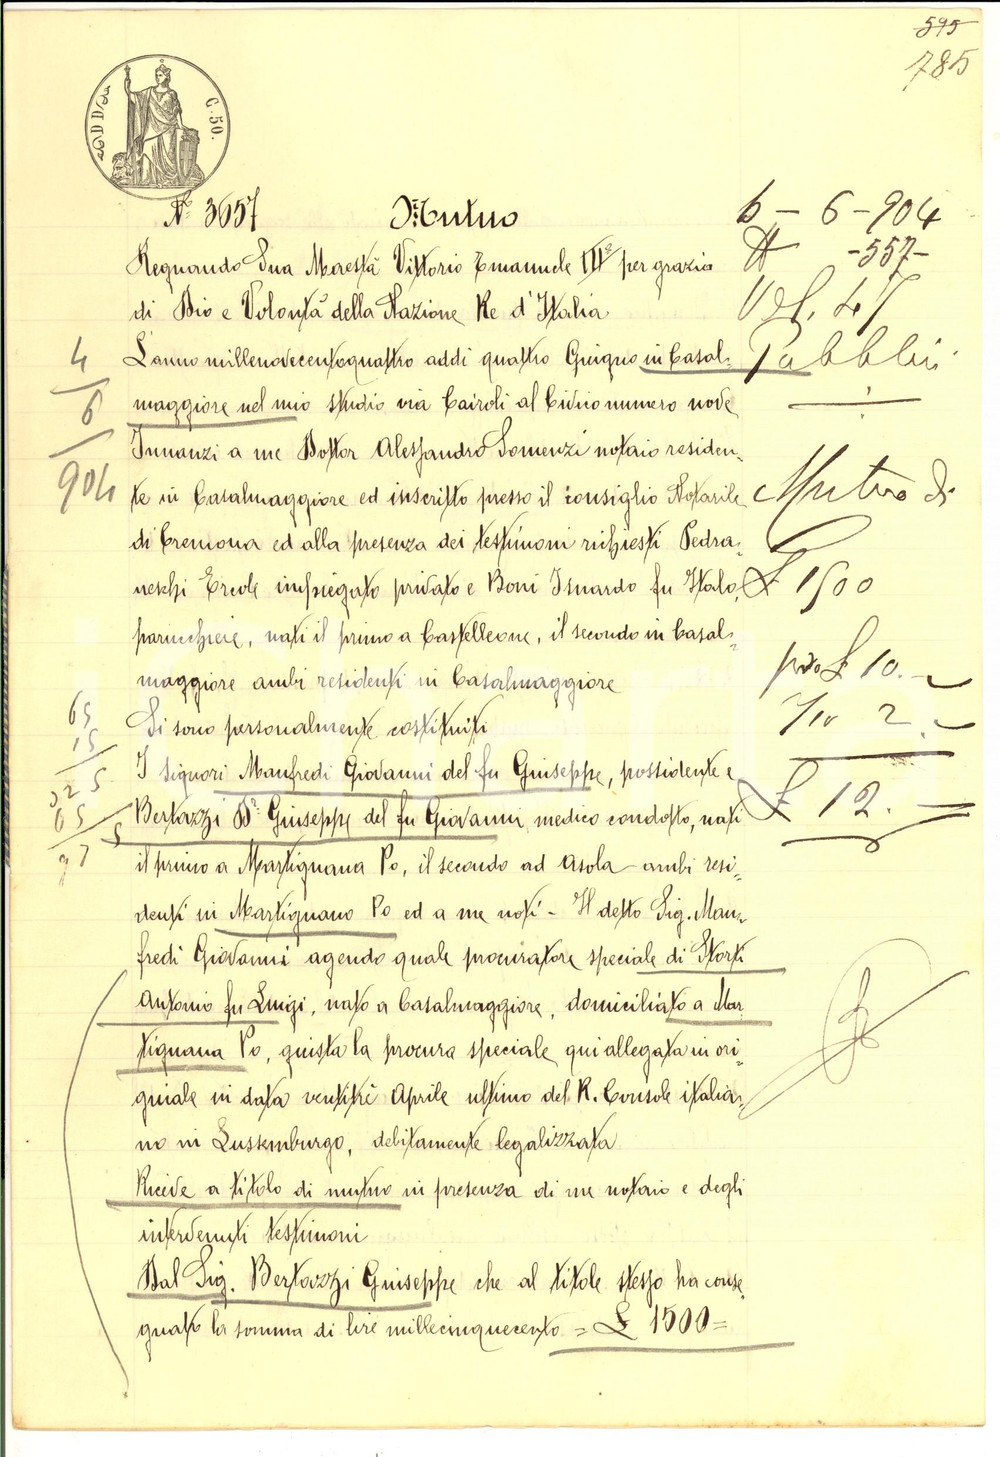 595
785
C. 50.
N.° 3657 Mutuo
Regnando Sua Maestà Vittorio Emanuele III° per grazia
di Dio e Volontà della Nazione Re d'Italia
L'anno millenovecentoquattro addì quattro Giugno in Casal-
maggiore nel mio studio via Cairoli al Civico numero nove
Innanzi a me Dottor Alessandro Somenzi notaio residen-
te in Casalmaggiore ed inscritto presso il consiglio Notarile
di Cremona ed alla presenza dei testimoni richiesti Pedra-
neschi Ercole impiegato privato e Boni Isnardo fu Italo,
parucchiere, nati il primo a Castelleone, il secondo in Casal-
maggiore ambi residenti in Casalmaggiore
Si sono personalmente costituiti
I signori Manfredi Giovanni del fu Giuseppe, possidente e
Bertazzi D.r Giuseppe del fu Giovanni medico condotto, nati
il primo a Martignana Po, il secondo ad Asola - ambi resi-
denti in Martignano Po ed a me noti - Il detto Sig. Man-
fredi Giovanni agendo quale procuratore speciale di Storti
Antonio fu Luigi, nato a Casalmaggiore, domiciliato a Mar
tignana Po, giusta la procura speciale qui allegata in ori-
ginale in data ventitrè Aprile ultimo del R. Console italia-
no in Lussemburgo, debitamente legalizzata
Riceve a titolo di mutuo in presenza di me notaio e degli
intervenuti testimoni
Dal Sig. Bertazzi Giuseppe che al titolo stesso ha conse
gnato la somma di lire millecinquecento = £ 1500 =
6 - 6 - 904
N - 557 -
Vol. 47
Pubblici
Mutuo di
£ 1500
£ 10. -
1/10 2. -
£ 12. -
4
6
904
65
15
325
65
97 5